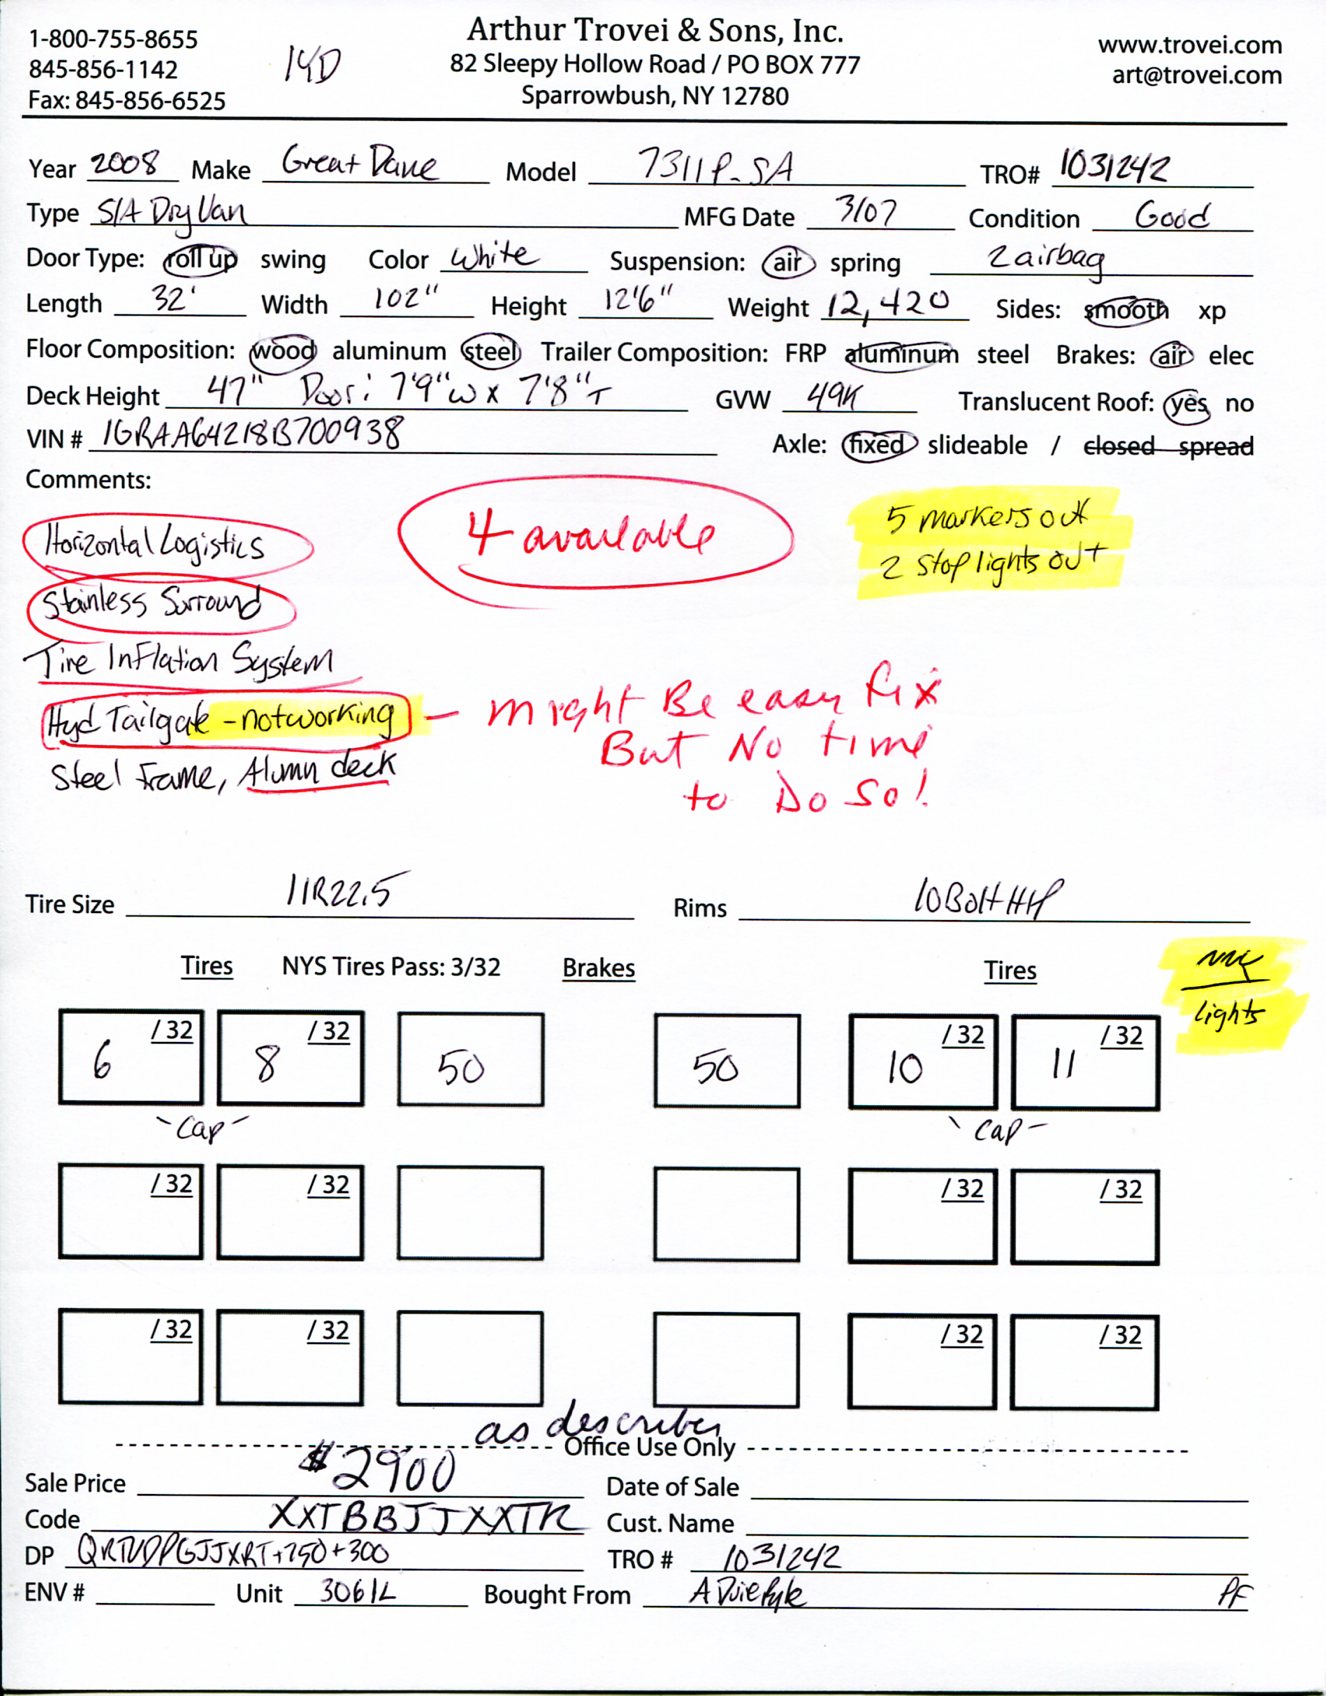 Arthur Trovei & Sons, Inc.
82 Sleepy Hollow Road / PO BOX 777
Sparrowbush, NY 12780
1-800-755-8655
845-856-1142
Fax: 845-856-6525
14D
www.trovei.com
art@trovei.com
Year 2008 Make Great Dane Model 7311P-SA TRO# 1031242
Type S/A Dry Van MFG Date 3/07 Condition Good
Door Type: roll up swing Color White Suspension: air spring 2 airbag
Length 32' Width 102" Height 12'6" Weight 12,420 Sides: smooth xp
Floor Composition: wood aluminum steel Trailer Composition: FRP aluminum steel Brakes: air elec
Deck Height 47" Door: 7'9"W x 7'8"T GVW 49K Translucent Roof: yes no
VIN # 1GRAA64218B700938 Axle: fixed slideable / closed spread
Comments:
4 available
5 markers out
2 stop lights out
Horizontal Logistics
Stainless Surround
Tire Inflation System
Hyd Tailgate - not working - might Be easy fix
But No time
to Do So!
Steel Frame, Alumn deck
Tire Size 11R22.5 Rims 10 Bolt HP
Tires NYS Tires Pass: 3/32 Brakes Tires
lights
6 /32 8 /32 50 50 10 /32 11 /32
-Cap- -Cap-
/32 /32 /32 /32
/32 /32 /32 /32
as describes
Office Use Only
Sale Price $2900 Date of Sale
Code XXTBBJJXXTR Cust. Name
DP +250+300 TRO # 1031242
ENV # Unit 3061L Bought From A Duie Pyle PF